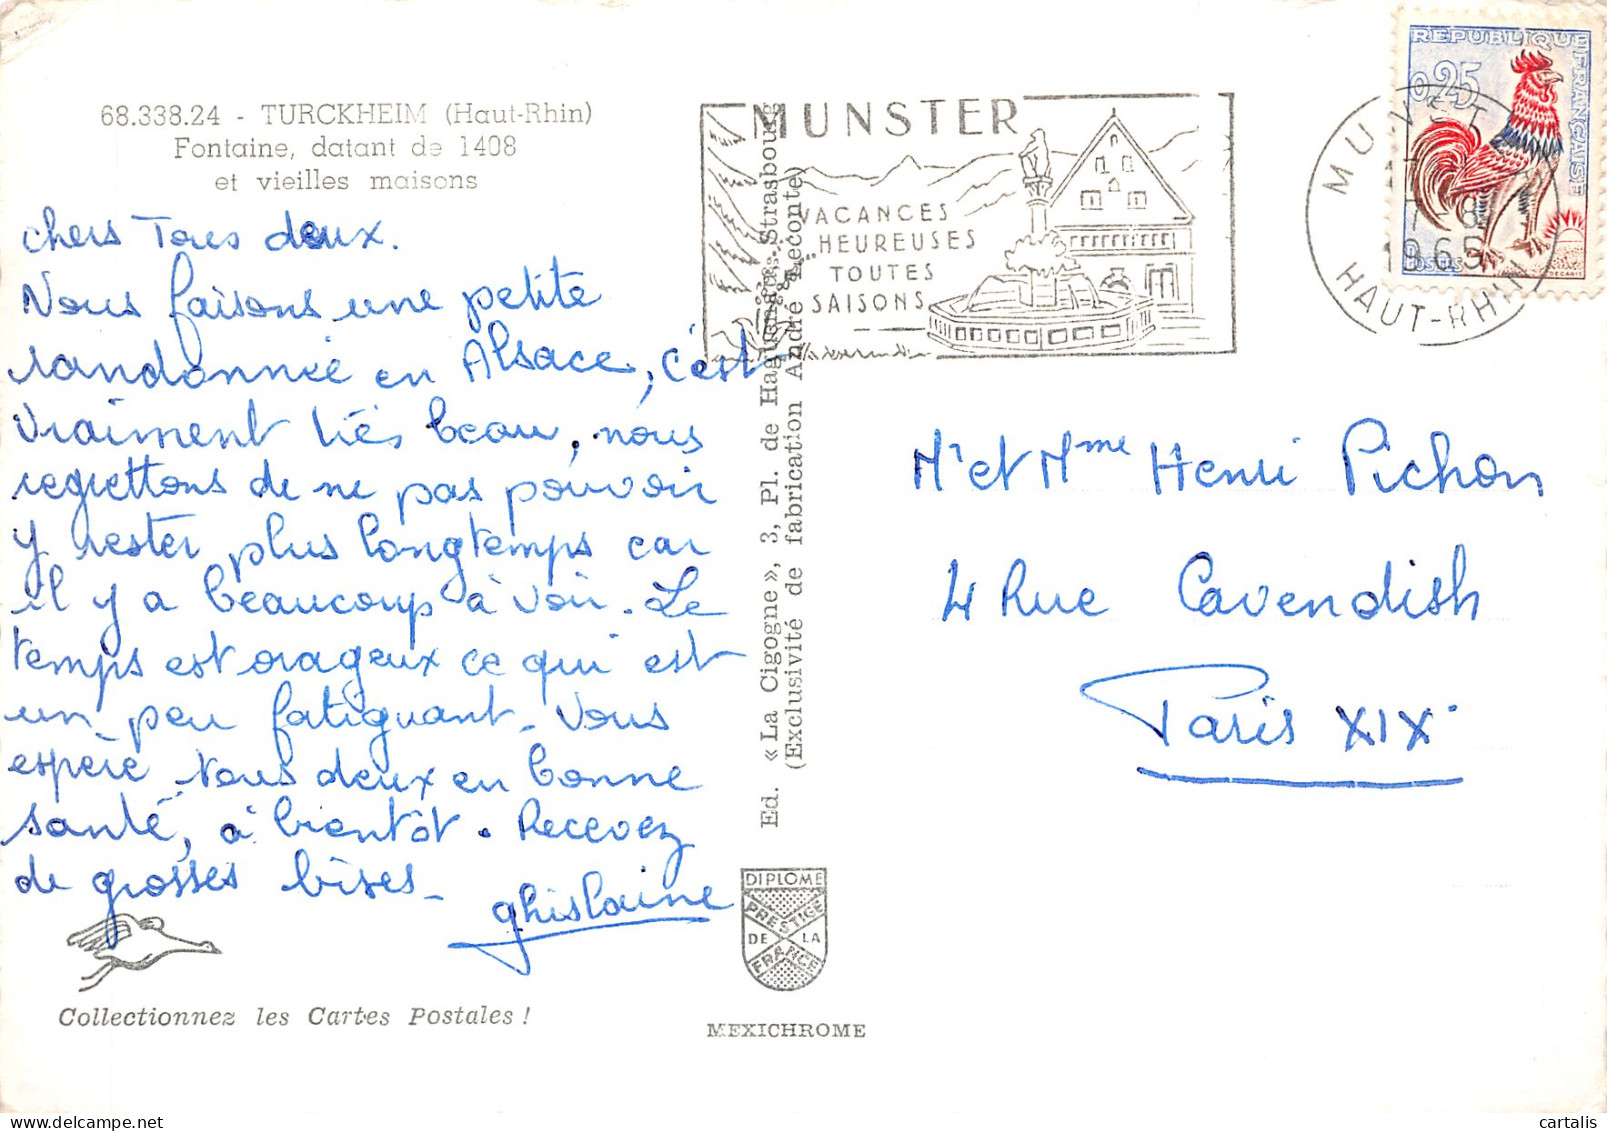 68.338.24 - TURCKHEIM (Haut-Rhin)
Fontaine, datant de 1408
et vieilles maisons
chers Tous deux.
Nous faisons une petite
randonnée en Alsace, c'est
vraiment très beau, nous
regrettons de ne pas pouvoir
y rester plus longtemps car
il y a beaucoup à voir. Le
temps est orageux ce qui est
un peu fatiguant - Vous
espère tous deux en bonne
santé, à bientôt. Recevez
de grosses bises -
ghislaine
Collectionnez les Cartes Postales !
Ed. «La Cigogne», 3, Pl. de Haguenau - Strasbourg
(Exclusivité de fabrication André Leconte)
DIPLOME
PRESTIGE
DE LA
FRANCE
MEXICHROME
MUNSTER
VACANCES
HEUREUSES
TOUTES
SAISONS
REPUBLIQUE FRANÇAISE
0,25
POSTES
DECARIS
MUNSTER
1965
HAUT-RHIN
Mr et Mme Henri Pichon
4 Rue Cavendish
Paris XIX
cartalis
delcampe.net